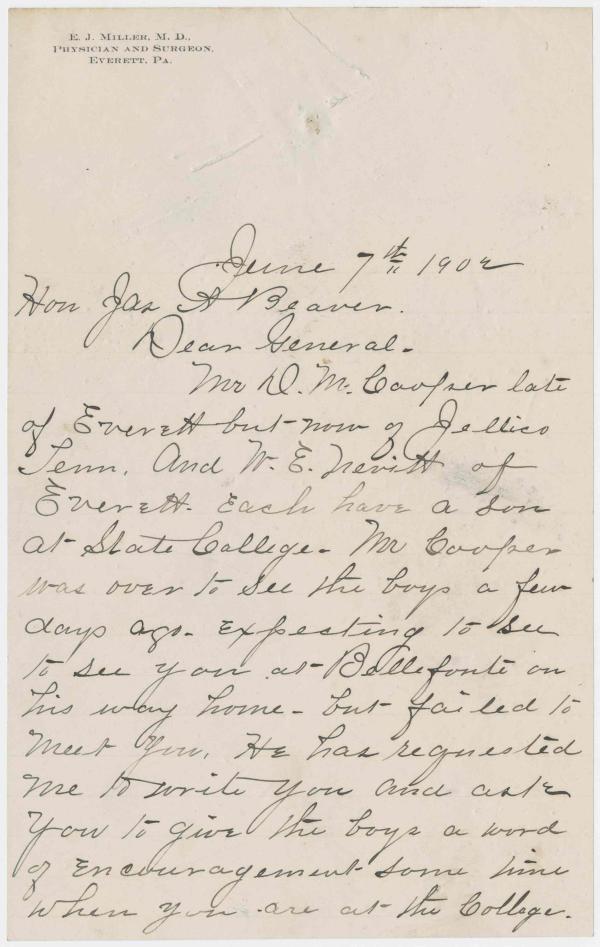 E. J. Miller, M. D.,
Physician and Surgeon,
Everett, Pa.
June 7th 1902
Hon Jas A Beaver.
Dear General-
Mr D. M. Cooper late
of Everett but now of Jellico
Tenn. And W. E. Nevitt of
Everett. Each have a son
at State College- Mr Cooper
was over to see the boys a few
days ago- expecting to see
to see you at Bellefonte on
his way home- but failed to
meet you. He has requested
me to write you and ask
you to give the boys a word
of encouragement some time
when you are at the College.